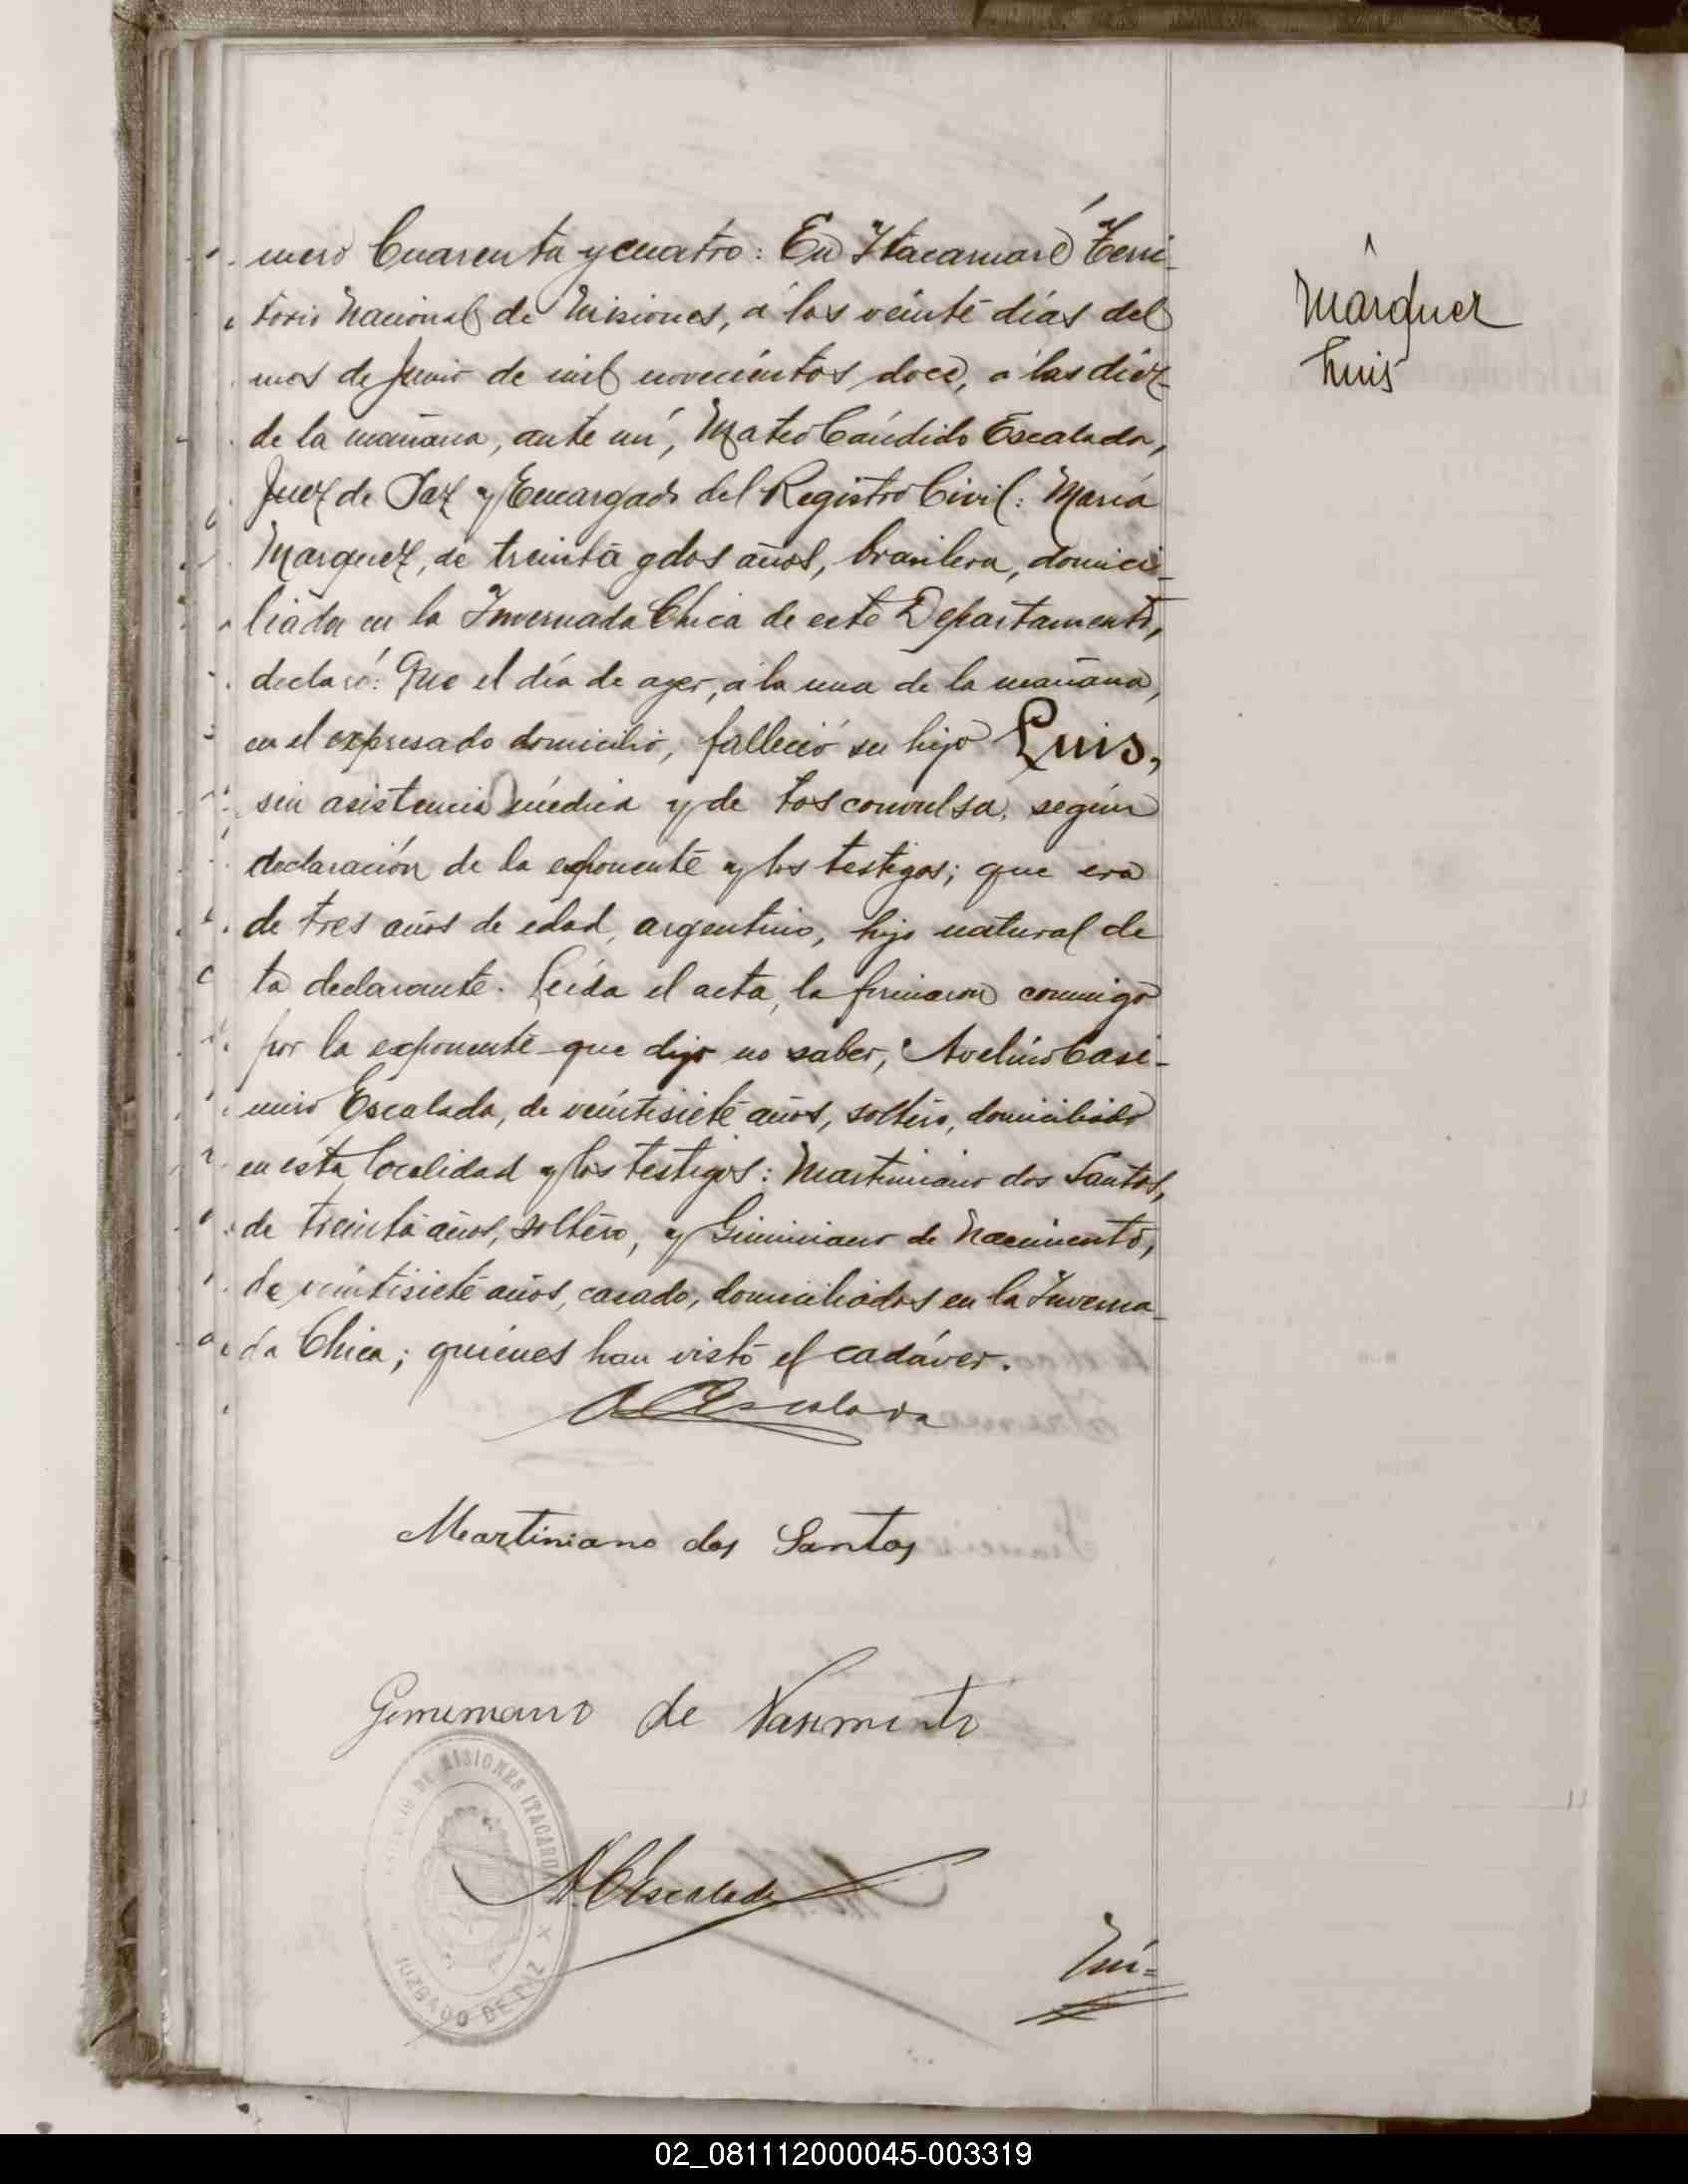 mero Cuarenta y cuatro: En Itacaruaré Terri-
torio Nacional de Misiones, á los veinte días del
mes de Junio de mil novecientos doce, á las diéz
de la mañana, ante mí, Mateo Cándido Escalada,
Juez de Paz y Encargado del Registro Civil: María
Marquez, de treinta y dos años, brasilera, domici-
liada en la Invernada Chica de este Departamento,
declaró: Que el día de ayer, á la una de la mañana,
en el expresado domicilio, falleció su hijo Luis,
sin asistencia médica y de tos convulsa, según
declaración de la exponente y los testigos; que era
de tres años de edad, argentino, hijo natural de
la declarante. Leída el acta, la firmaron conmigo
por la exponente que dijo no saber, Avelino Casi-
miro Escalada, de veintisiete años, soltero, domiciliado
en ésta localidad y los testigos: Martiniano dos Santos,
de treinta años, soltero, y Giminiano de Nacimiento,
de veintisiete años, casado, domiciliados en la Inverna-
da Chica; quiénes han visto el cadáver.
Márquez
Luis
A C Escalada
Martiniano dos Santos
de Nasimento
DE MISIONES ITACARUA
JUZGADO DE PAZ
M. C. Escalada
Nú=
02_081112000045-003319